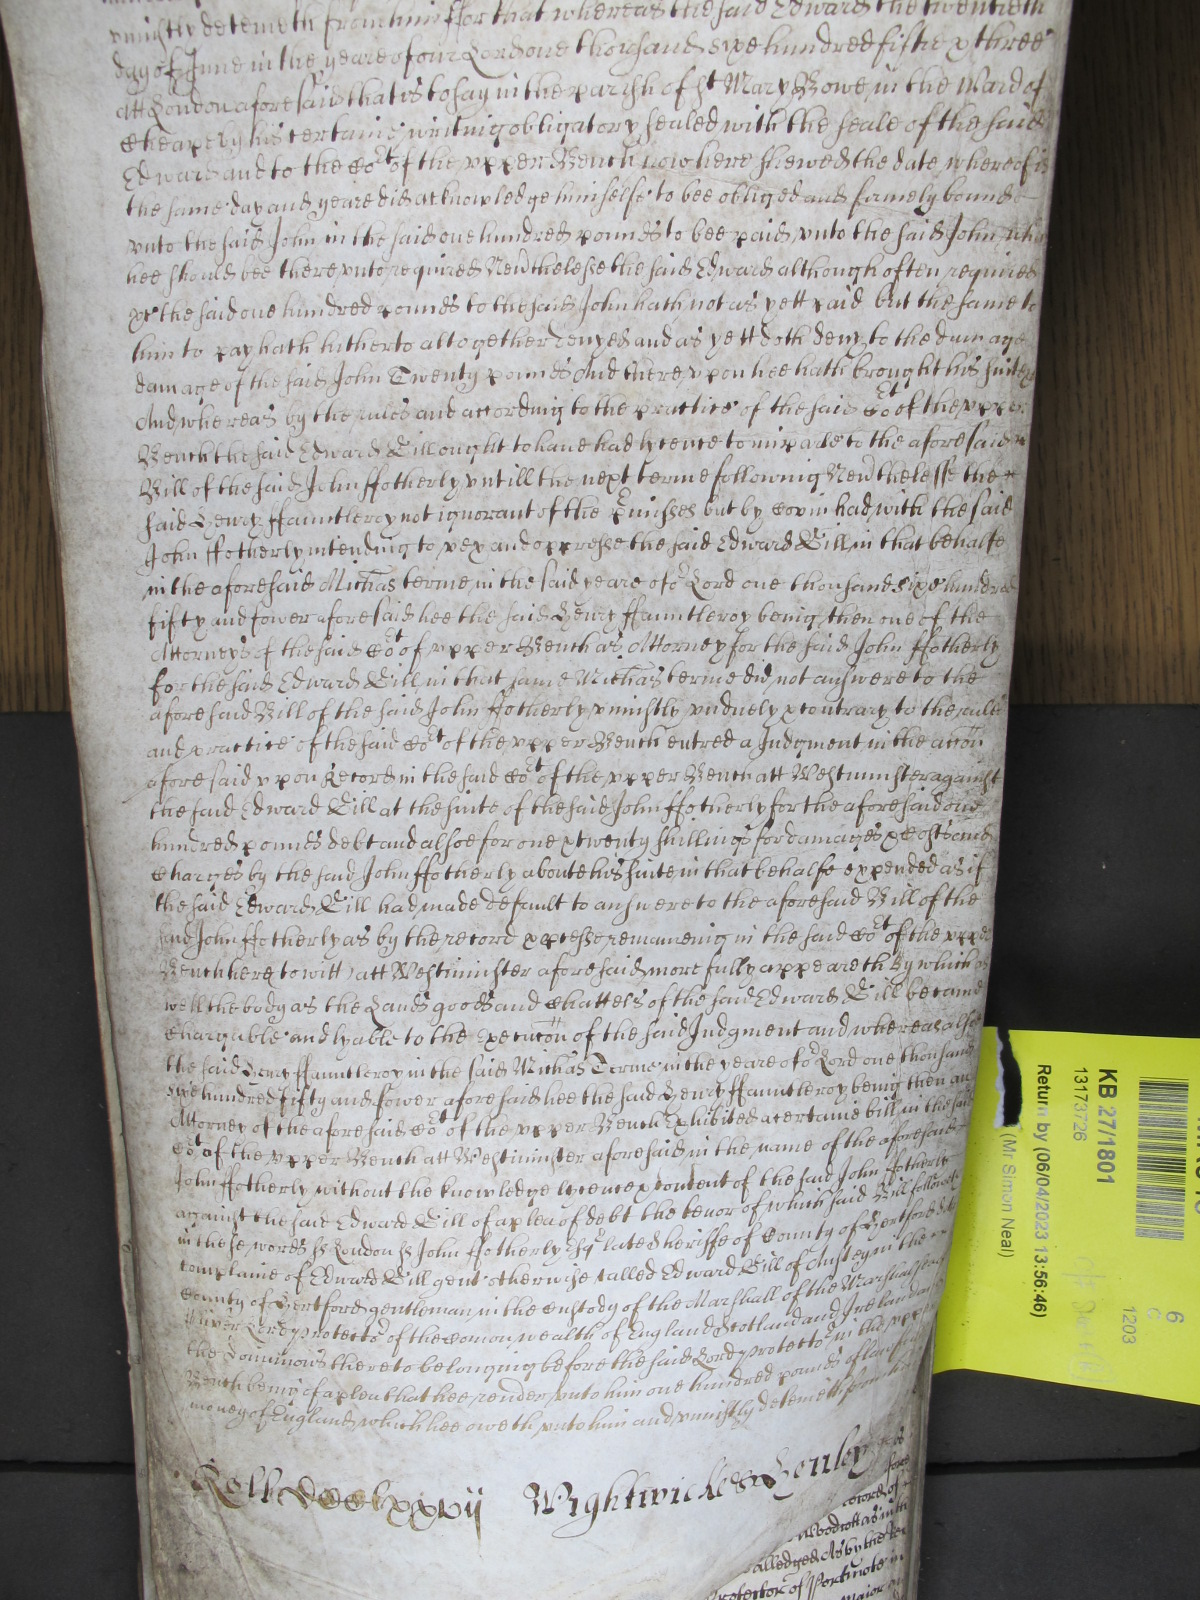 vniustly deteineth from him ffor that whereas the said Edward the twentieth
day of June in the yeare of our Lord one thousand sixe hundred fiftie & three
att London aforesaid that is to say in the parish of St Mary Bowe in the Ward of
Cheape by his certaine writing obligatory sealed with the seale of the said
Edward and to the Cot of the vpper Bench now here shewed the date whereof is
the same day and yeare did acknowledge himselfe to bee obliged and firmely bound
vnto the said John in the said one hundred pounds to bee paid vnto the said John
hee should bee therevnto required Neuthelesse the said Edward although often required
the said one hundred pounds to the said John hath not as yett paid but the same to
him to pay hath hitherto altogether denyed and as yett doth deny to the damage
damage of the said John Twenty pounds And therevpon hee hath brought his suite &c
And whereas by the rules and according to the practice of the said Cot of the vpper
Bench the said Edward Gill ought to haue had lycence to imparle to the aforesaid
Bill of the said John ffotherly vntill the next terme following Neuthelesse the
said Henry ffauntleroy not ignorant of the pmisses but by Covin had with the said
John ffotherly intending to vex and oppresse the said Edward Gill in that behalfe
in the aforesaid Michas terme in the said yeare of or Lord one thousand sixe hundred
fifty and fower aforesaid hee the said Henry ffauntleroy being then one of the
Attorneys of the said Cot of vpper Bench as Attorney for the said John ffotherly
for the said Edward Gill in that same Michas terme did not answere to the
aforesaid Bill of the said John ffotherly vniustly vnduely & contrary to the rules
and practice of the said Cot of the vpper Bench entred a Judgment in the accon
aforesaid vpon Record in the said Cot of the vpper Bench att Westminster against
the said Edward Gill at the suite of the said John ffotherly for the aforesaid one
hundred pounds debt and alsoe for one & twenty shillings for damages & costs and
Charges by the said John ffotherly aboute his suite in that behalfe expended as if
the said Edward Gill had made default to answere to the aforesaid Bill of the
said John ffotherly as by the record & processe remaineing in the said Cot of the vpper
Bench here to witt att Westminster aforesaid more fully appeareth By which as
well the body as the Lands goods and Chattels of the said Edward Gill became
Chargable and lyable to the Execucon of the said Judgment and whereas alsoe
the said Henry ffauntleroy in the said Michas Terme in the yeare of or Lord one thousand
sixe hundred fifty and fower aforesaid hee the said Henry ffauntleroy being then an
Attorney of the aforesaid Cot of the vpper Bench Exhibited a certaine bill in the said
Cot of the vpper Bench att Westminster aforesaid in the name of the aforesaid
John ffotherly without the knowledge lycence & consent of the said John ffotherly
against the said Edward Gill of a plea of debt the tenor of which said Bill followeth
in these words ss London ss John ffotherly Esqr late Sheriffe of County of Hertford
complaine of Edward Gill gent otherwise called Edward Gill of Anstey in the
County of Hertford gentleman in the custody of the Marshall of the Marshalsey
Oliver Lord protector of the Comon wealth of England Scotland and Ireland and
the Dominions thereto belonging before the said Lord protector in the vpper
Bench being of a plea that hee render vnto him one hundred pounds of lawfull
money of England which hee oweth vnto him and vniustly deteineth from him
Roll dccclxxvij Wightwicke & Henley
record of
Woodcott as in
alledged As by the
Protector of Portmote in
Maior
KB 27/1801
13173726
Return by (06/04/2023 13:56:46)
(Mr Simon Neal)
6
C
1203